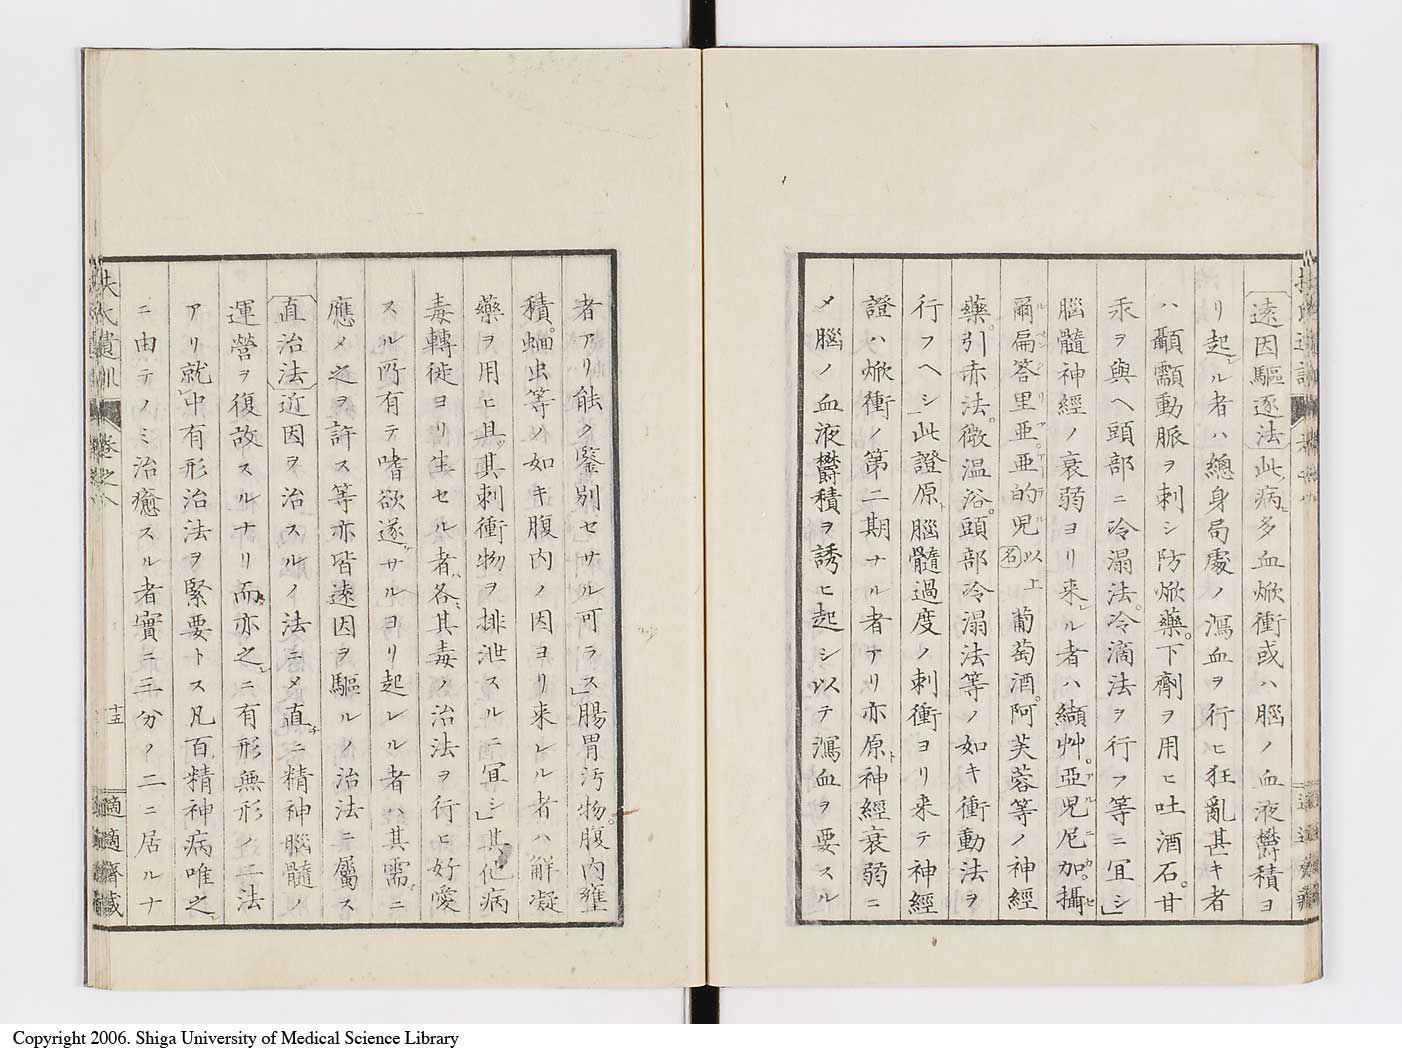 遠因驅逐法此病多血焮衝或ハ腦ノ血液欝積ヨ
リ起ル者ハ總身局處ノ瀉血ヲ行ヒ狂亂甚キ者
ハ顳顬動脈ヲ刺シ防焮藥。下劑ヲ用ヒ吐酒石。甘
汞ヲ與ヘ頭部ニ冷溻法。冷滴法ヲ行フ等ニ冝シ」
腦髓神經ノ衰弱ヨリ来ル者ハ纈艸。亞兒尼加。攝
爾扁答里亜。亜的兒以上石葡萄酒。阿芙蓉等ノ神經
藥。引赤法。微温浴。頭部冷溻法等ノ如キ衝動法ヲ
行フヘシ」此證原ト腦髓過度ノ刺衝ヨリ来テ神經
證ハ焮衝ノ第二期ナル者アリ亦原ト神經衰弱ニ
乄腦ノ血液欝積ヲ誘ヒ起シ以テ瀉血ヲ要スル
者アリ能ク鑒別セサル可ラス」腸胃汚物。腹内壅
積。蛔虫等ノ如キ腹内ノ因ヨリ来レル者ハ觧凝
藥ヲ用ヒ且其刺衝物ヲ排泄スルニ冝シ」其他病
毒轉徙ヨリ生セル者ハ各其毒ノ治法ヲ行ヒ好愛
スル所有テ嗜欲遂ケサルヨリ起レル者ハ其需ニ
應メ之ヲ許ス等亦皆遠因ヲ驅ルノ治法ニ屬ス
直治法近因ヲ治スルノ法ニ乄直チニ精神腦髓ノ
運營ヲ復故スルナリ而亦之ニ有形無形ノ二法
アリ就中有形治法ヲ緊要トス凡百精神病唯之
ニ由テノミ治癒スル者實ニ三分ノ二ニ居ルナ
扶氏遺訓 卷之八
十五
適適齋藏